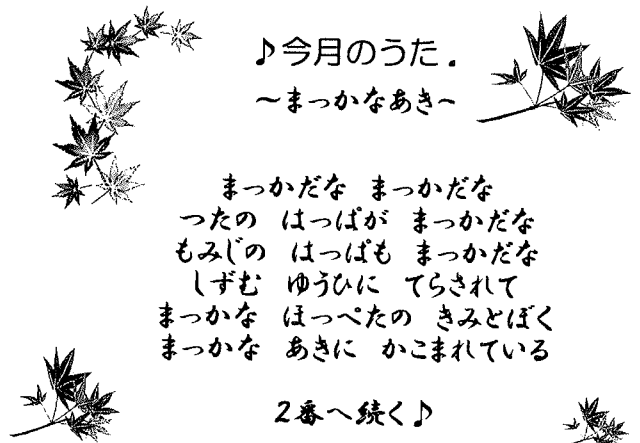 ♪今月のうた.
～まっかなあき～
まっかだな まっかだな
つたの はっぱが まっかだな
もみじの はっぱも まっかだな
しずむ ゆうひに てらされて
まっかな ほっぺたの きみとぼく
まっかな あきに かこまれている
2番へ続く♪